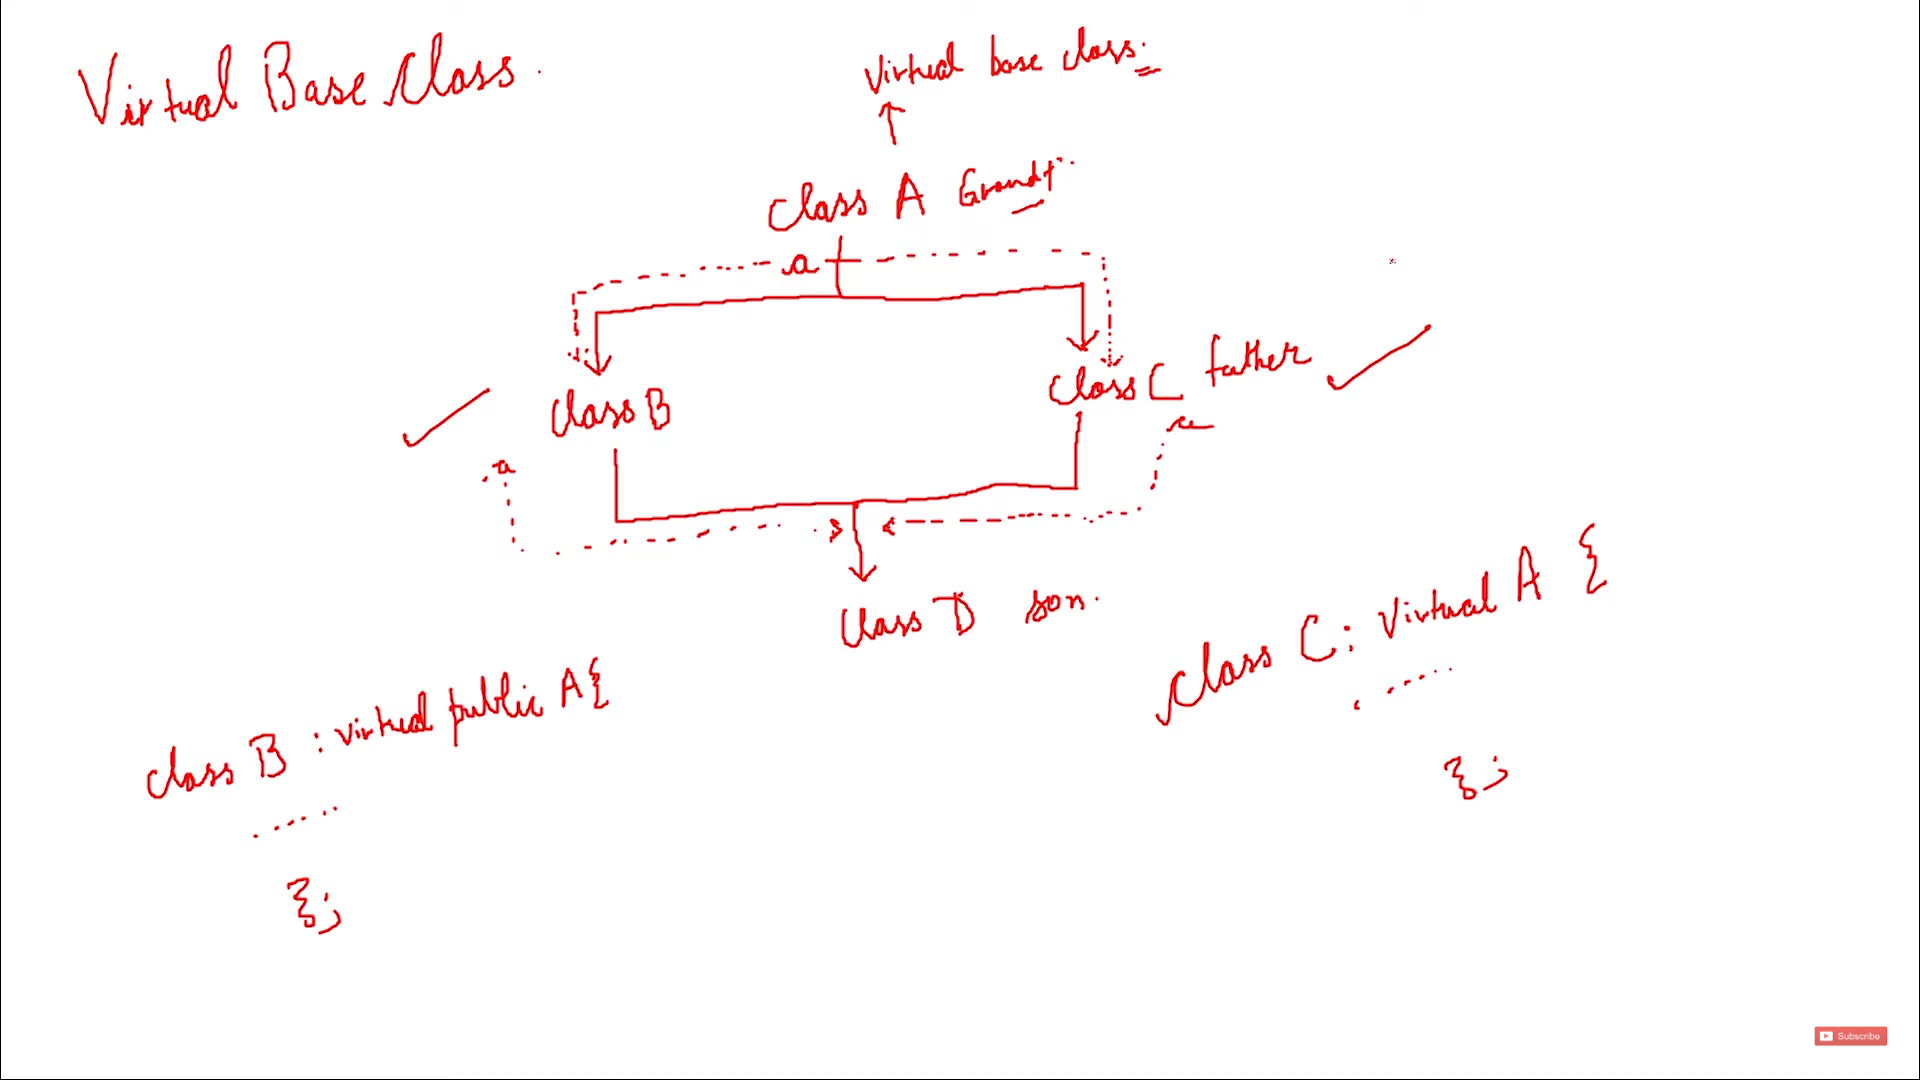 Virtual Base Class.
Virtual base class.
Class A Grandf...
a
Class B
Class C father
a
a
Class D son.
class B : virtual public A{
......
};
class C : Virtual A {
......
};
Subscribe